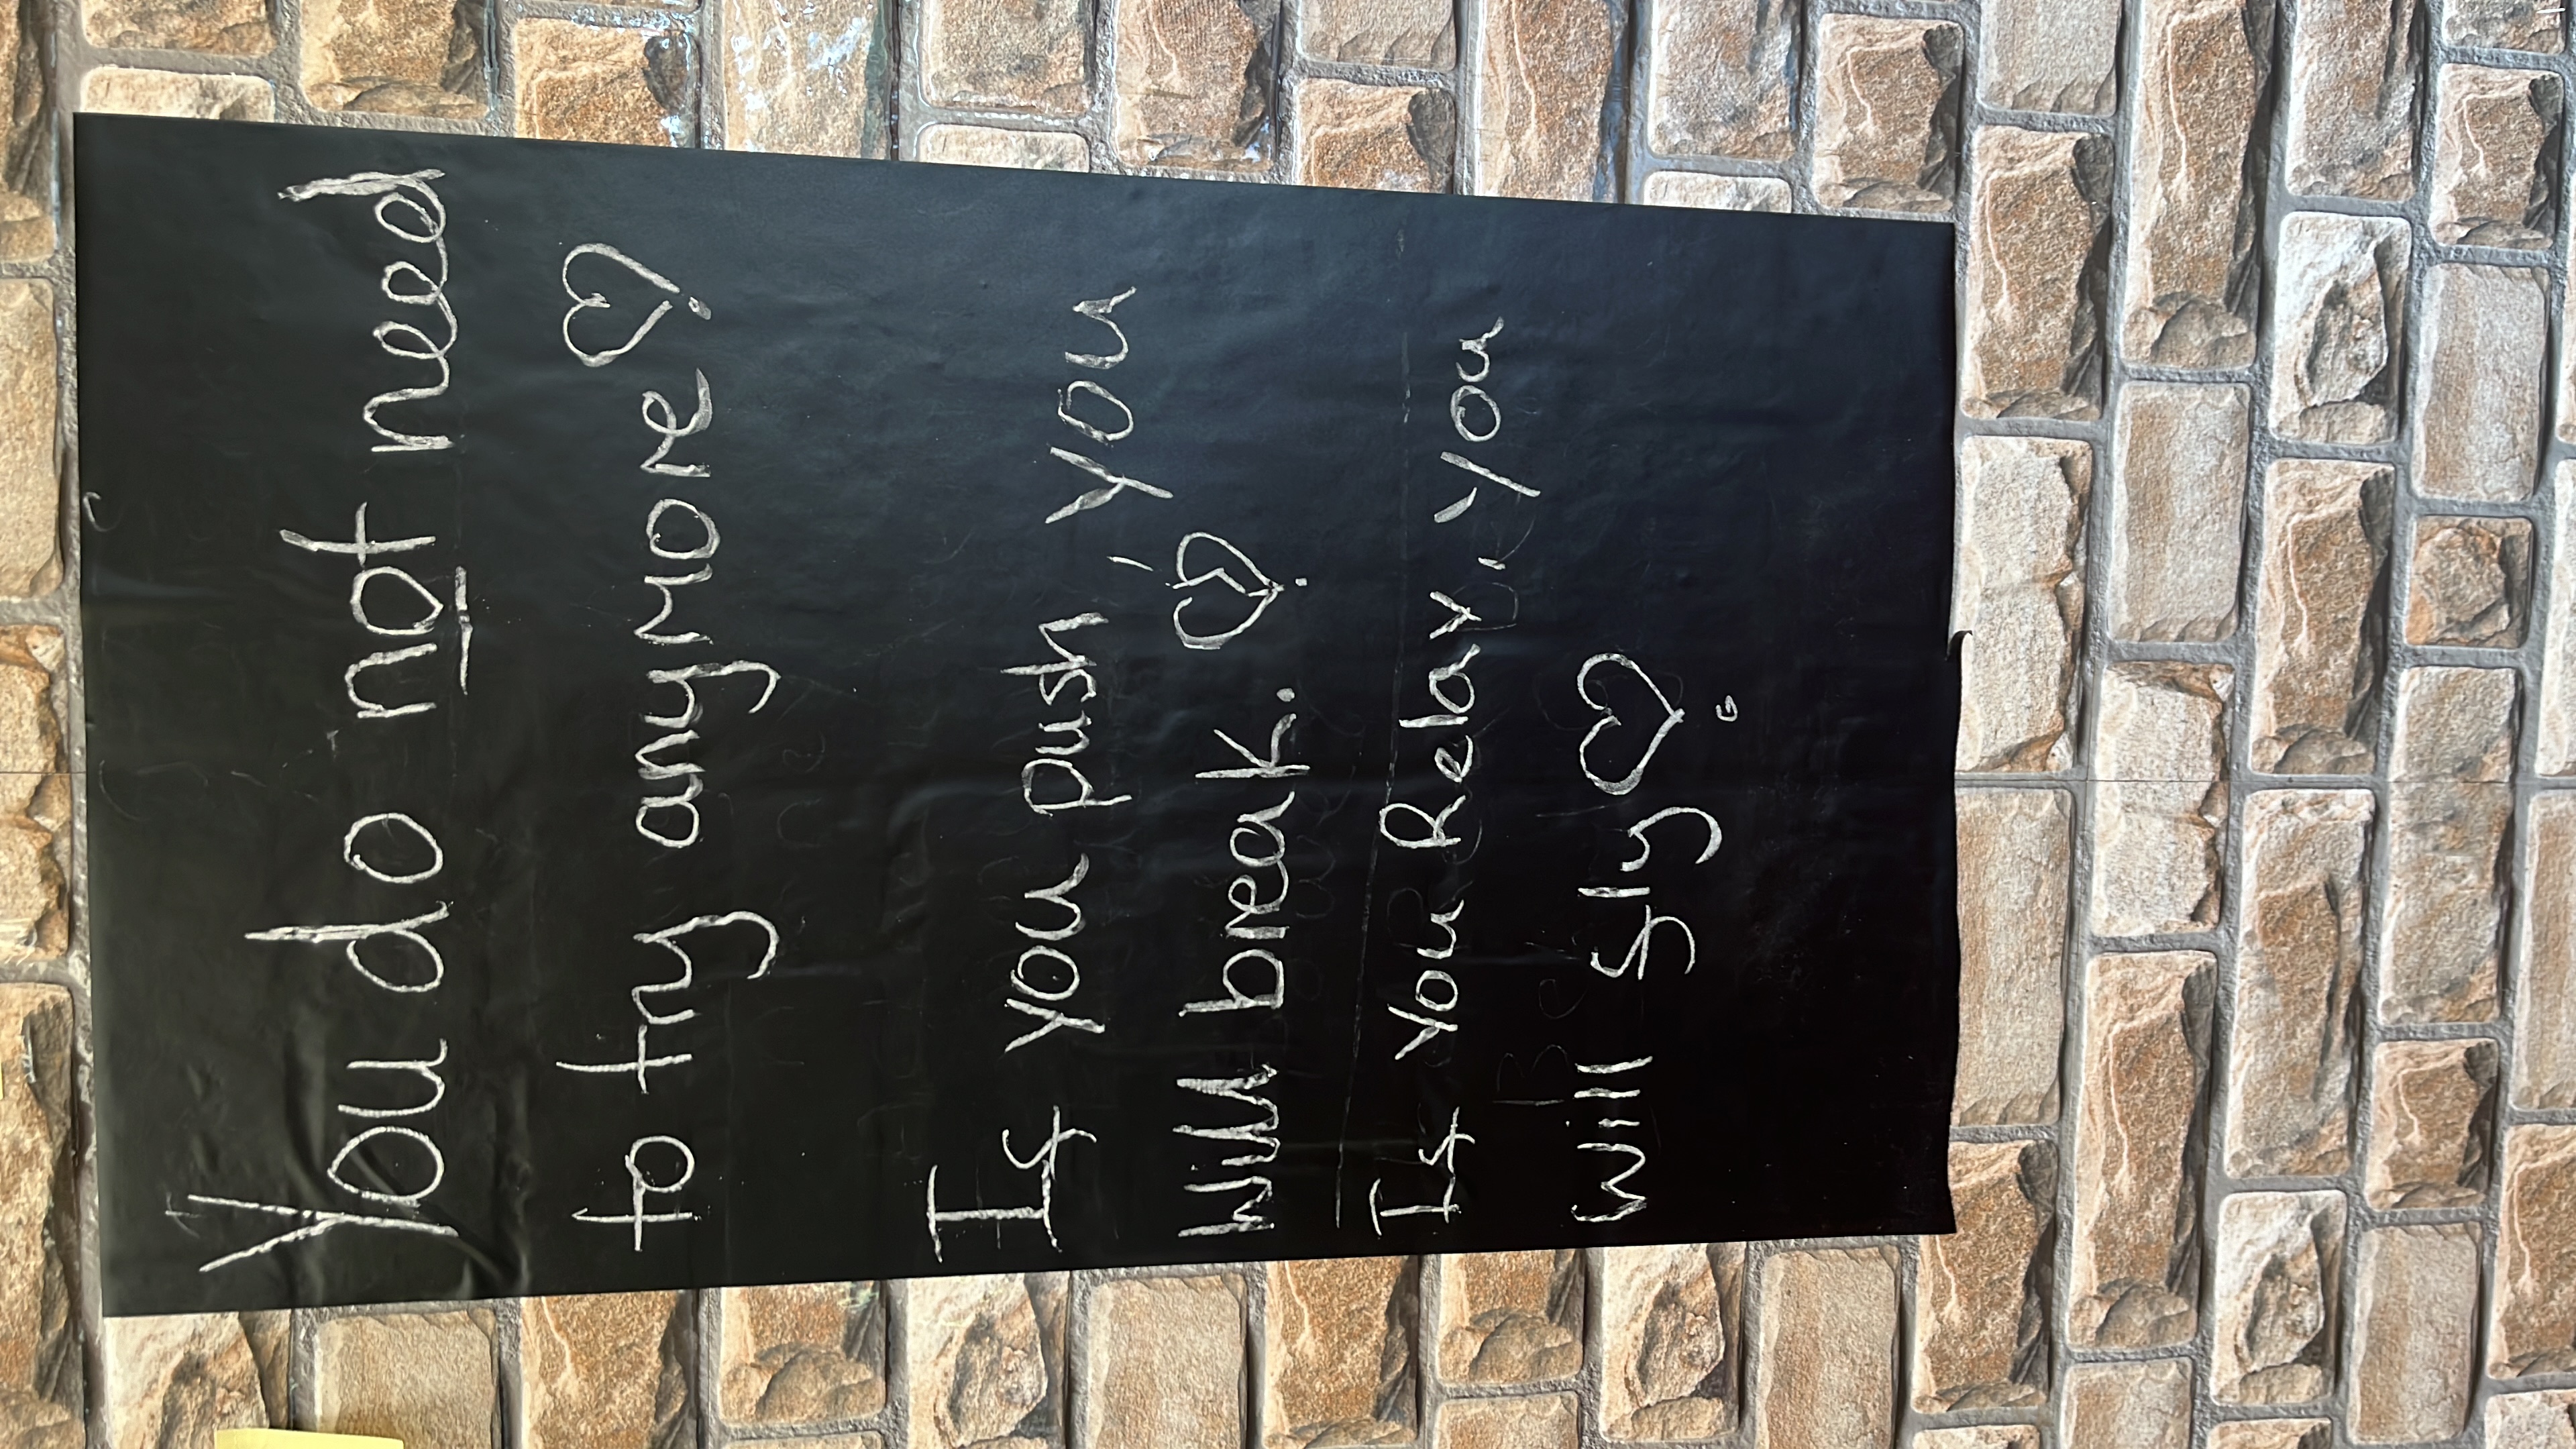 You do not need
to try anymore♡
If you push, you
will break. 💔
If You Relax, you
will fly♡
G